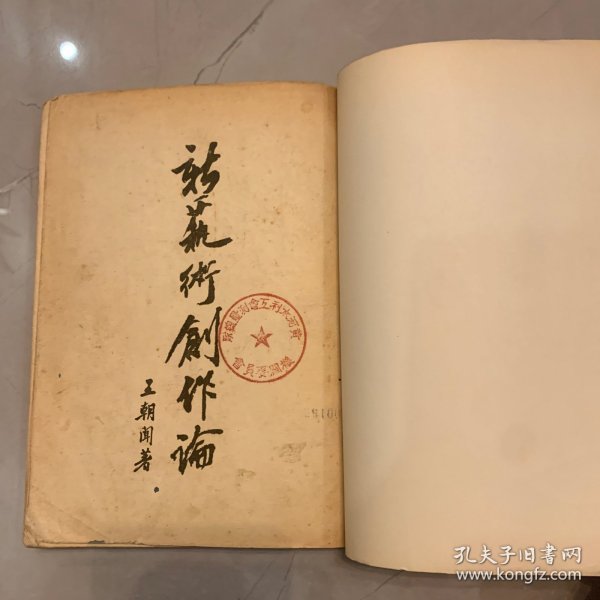 新藝術創作論
王朝聞著
孔夫子旧書网
www.kongfz.com